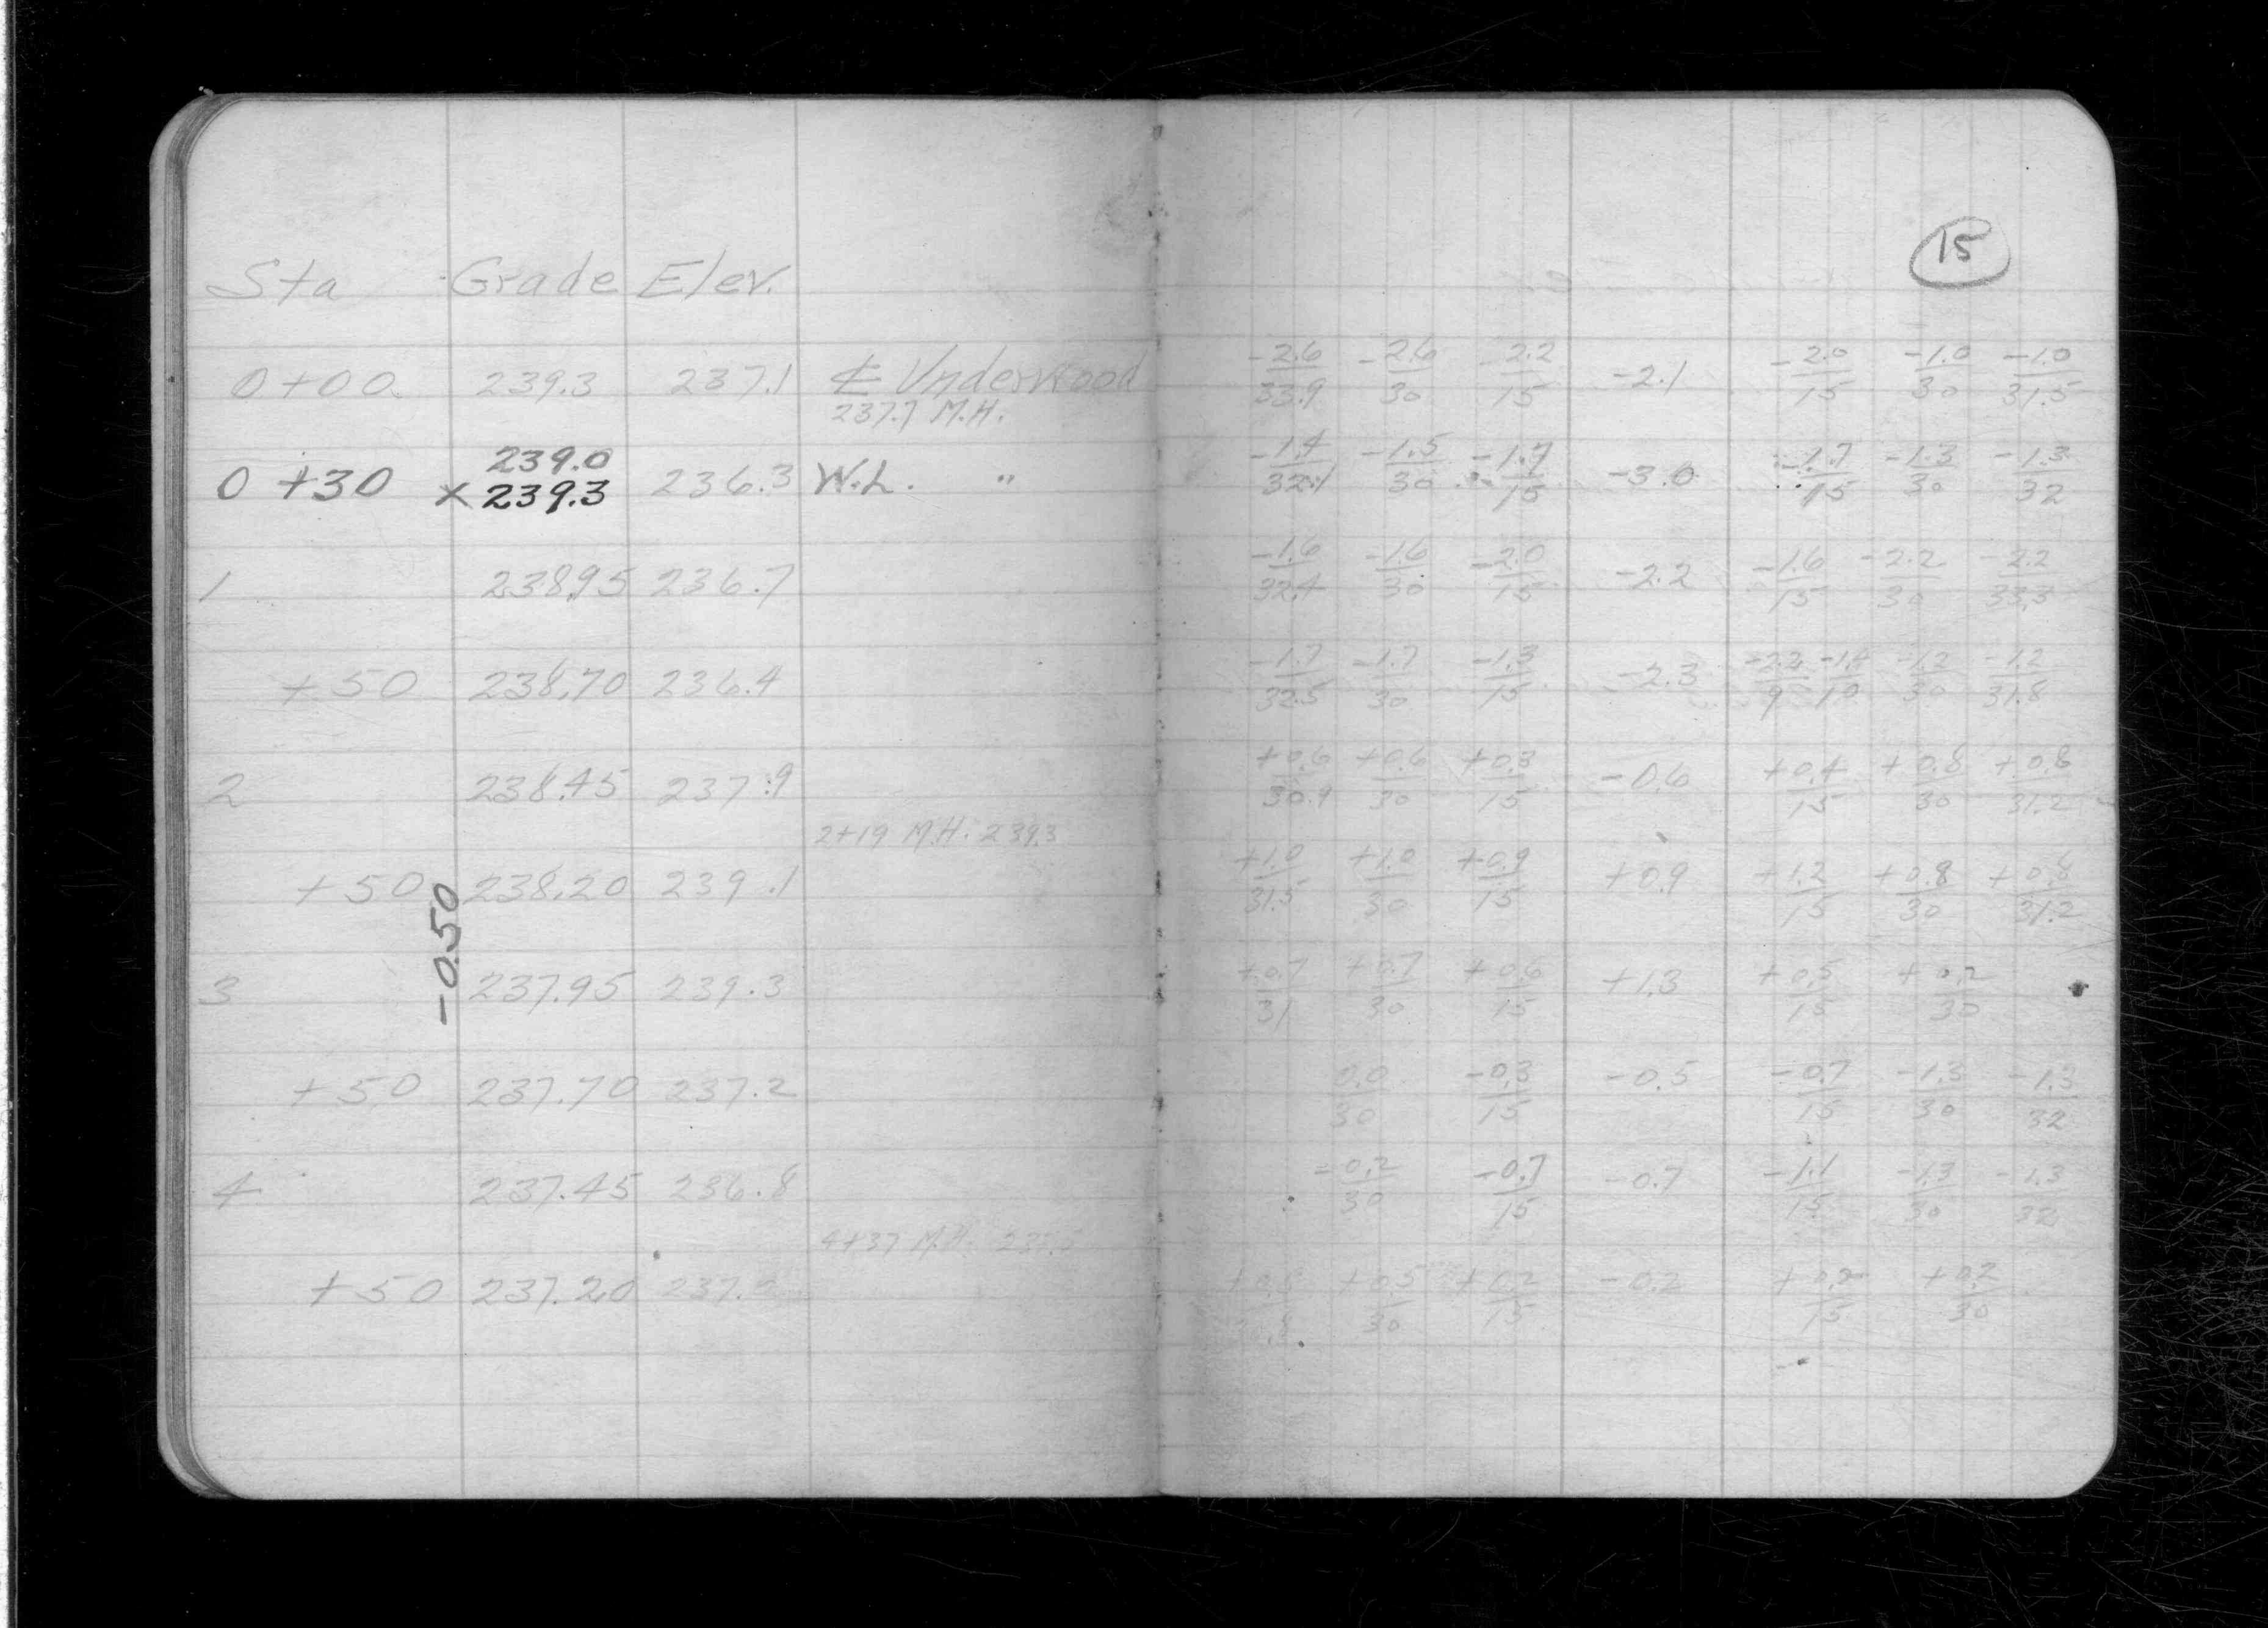 15
Sta Grade Elev.
0+00 239.3 237.1 ℄ Underwood -2.6/33.9 -2.6/30 -2.2/15 -2.1 -2.0/15 -1.0/30 -1.0/31.5
237.7 M.H.
239.0
0 +30 x 239.3 236.3 W.L. " -1.4/32.1 -1.5/30 -1.7/15 -3.0 -1.7/15 -1.3/30 -1.3/32
1 238.95 236.7 -1.6/32.4 -1.6/30 -2.0/15 -2.2 -1.6/15 -2.2/30 -2.2/33.3
+50 238.70 236.4 -1.7/32.5 -1.7/30 -1.3/15 -2.3 -2.2/9 -1.4/10 -1.2/30 -1.2/31.8
2 238.45 237.9 +0.6/30.9 +0.6/30 +0.3/15 -0.6 +0.4/15 +0.8/30 +0.8/31.2
2+19 M.H. 239.3
+50 238.20 239.1 +1.0/31.5 +1.0/30 +0.9/15 +0.9 +1.2/15 +0.8/30 +0.8/31.2
-0.50
3 237.95 239.3 +0.7/31 +0.7/30 +0.6/15 +1.3 +0.5/15 +0.2/30
+50 237.70 237.2 0.0/30 -0.3/15 -0.5 -0.7/15 -1.3/30 -1.3/32
4 237.45 236.8 -0.2/30 -0.7/15 -0.7 -1.1/15 -1.3/30 -1.3/32
4+37 M.H.
+50 237.20 +0.5/30 +0.2/15 -0.2 +0.2/15 +0.2/30